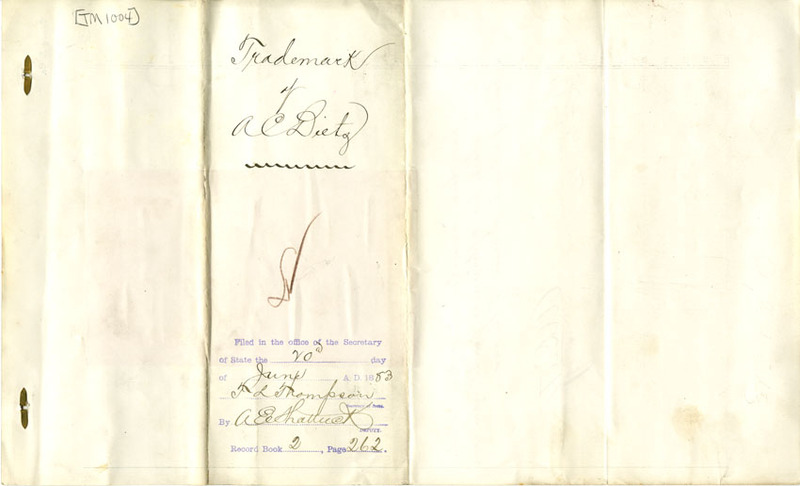 [TM1004]
Trademark
of
A C Dietz
Filed in the office of the Secretary
of State the 20 day
of June A. D. 1883
T L Thompson
Secretary of State.
By A E Shattuck
DEPUTY.
Record Book 2, Page 262.